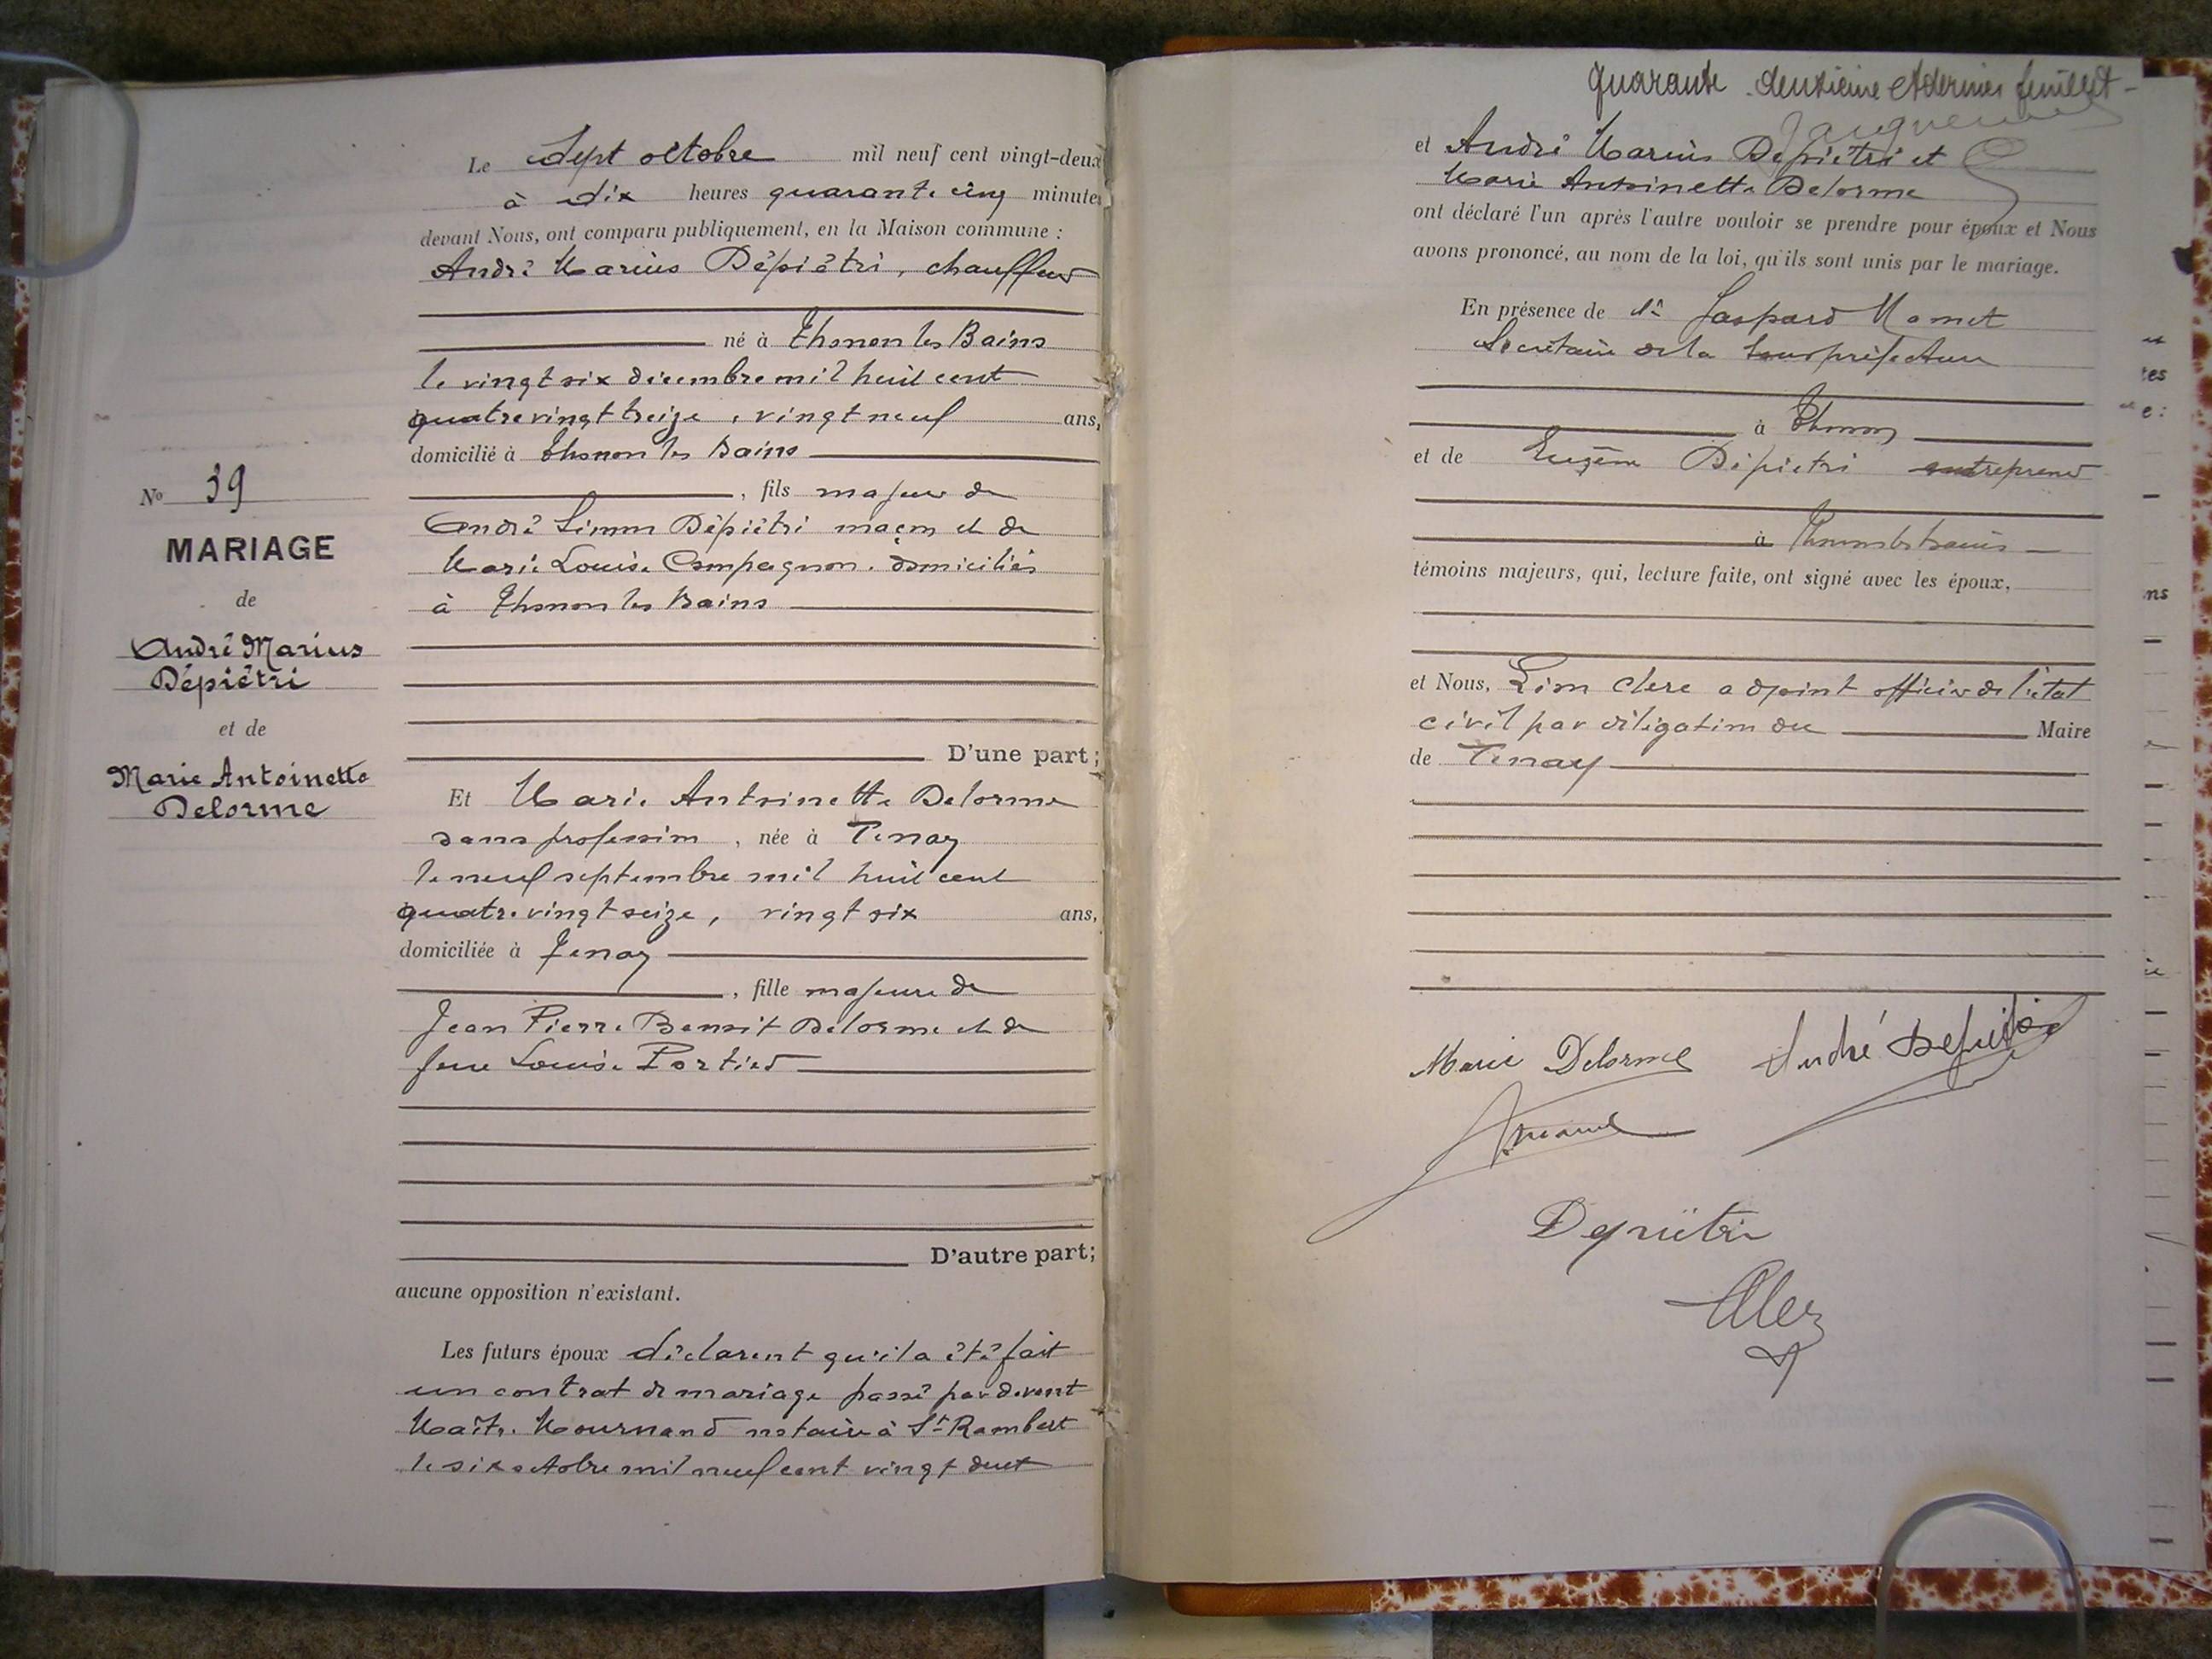 Le Sept octobre mil neuf cent vingt-deux
à dix heures quarante cinq minutes
devant Nous, ont comparu publiquement, en la Maison commune :
André Marius Dépiétri, chauffeur
né à Thonon les Bains
le vingt six décembre mil huit cent
quatre vingt treize, vingt neuf ans,
domicilié à Thonon les Bains
, fils majeur de
André Simon Dépiétri maçon et de
Marie Louise Compagnon. domiciliés
à Thonon les Bains
D'une part;
Et Marie Antoinette Delorme
sans profession, née à Tenay
le neuf septembre mil huit cent
quatre vingt seize, vingt six ans,
domiciliée à Tenay
, fille majeure de
Jean Pierre Benoit Delorme et de
feue Louise Portier
D'autre part;
aucune opposition n'existant.
Les futurs époux déclarent qu'il a été fait
un contrat de mariage passé par devant
Maître Mournand notaire à St Rambert
le six octobre mil neuf cent vingt deux
No 39
MARIAGE
de
André Marius
Dépiétri
et de
Marie Antoinette
Delorme
quarante deuxième et dernier feuillet
et André Marius Dépiétri et
Marie Antoinette Delorme
ont déclaré l'un après l'autre vouloir se prendre pour époux et Nous
avons prononcé, au nom de la loi, qu'ils sont unis par le mariage.
En présence de Gaspard
Secrétaire de la sous préfecture
à Thonon
et de Eugène Dépiétri entrepreneur
à Thonon les bains
témoins majeurs, qui, lecture faite, ont signé avec les époux,
et Nous, Léon Clerc adjoint officier de l'état
civil par déligation du Maire
de Tenay
Marie Delorme André Depiétri
Depiétri